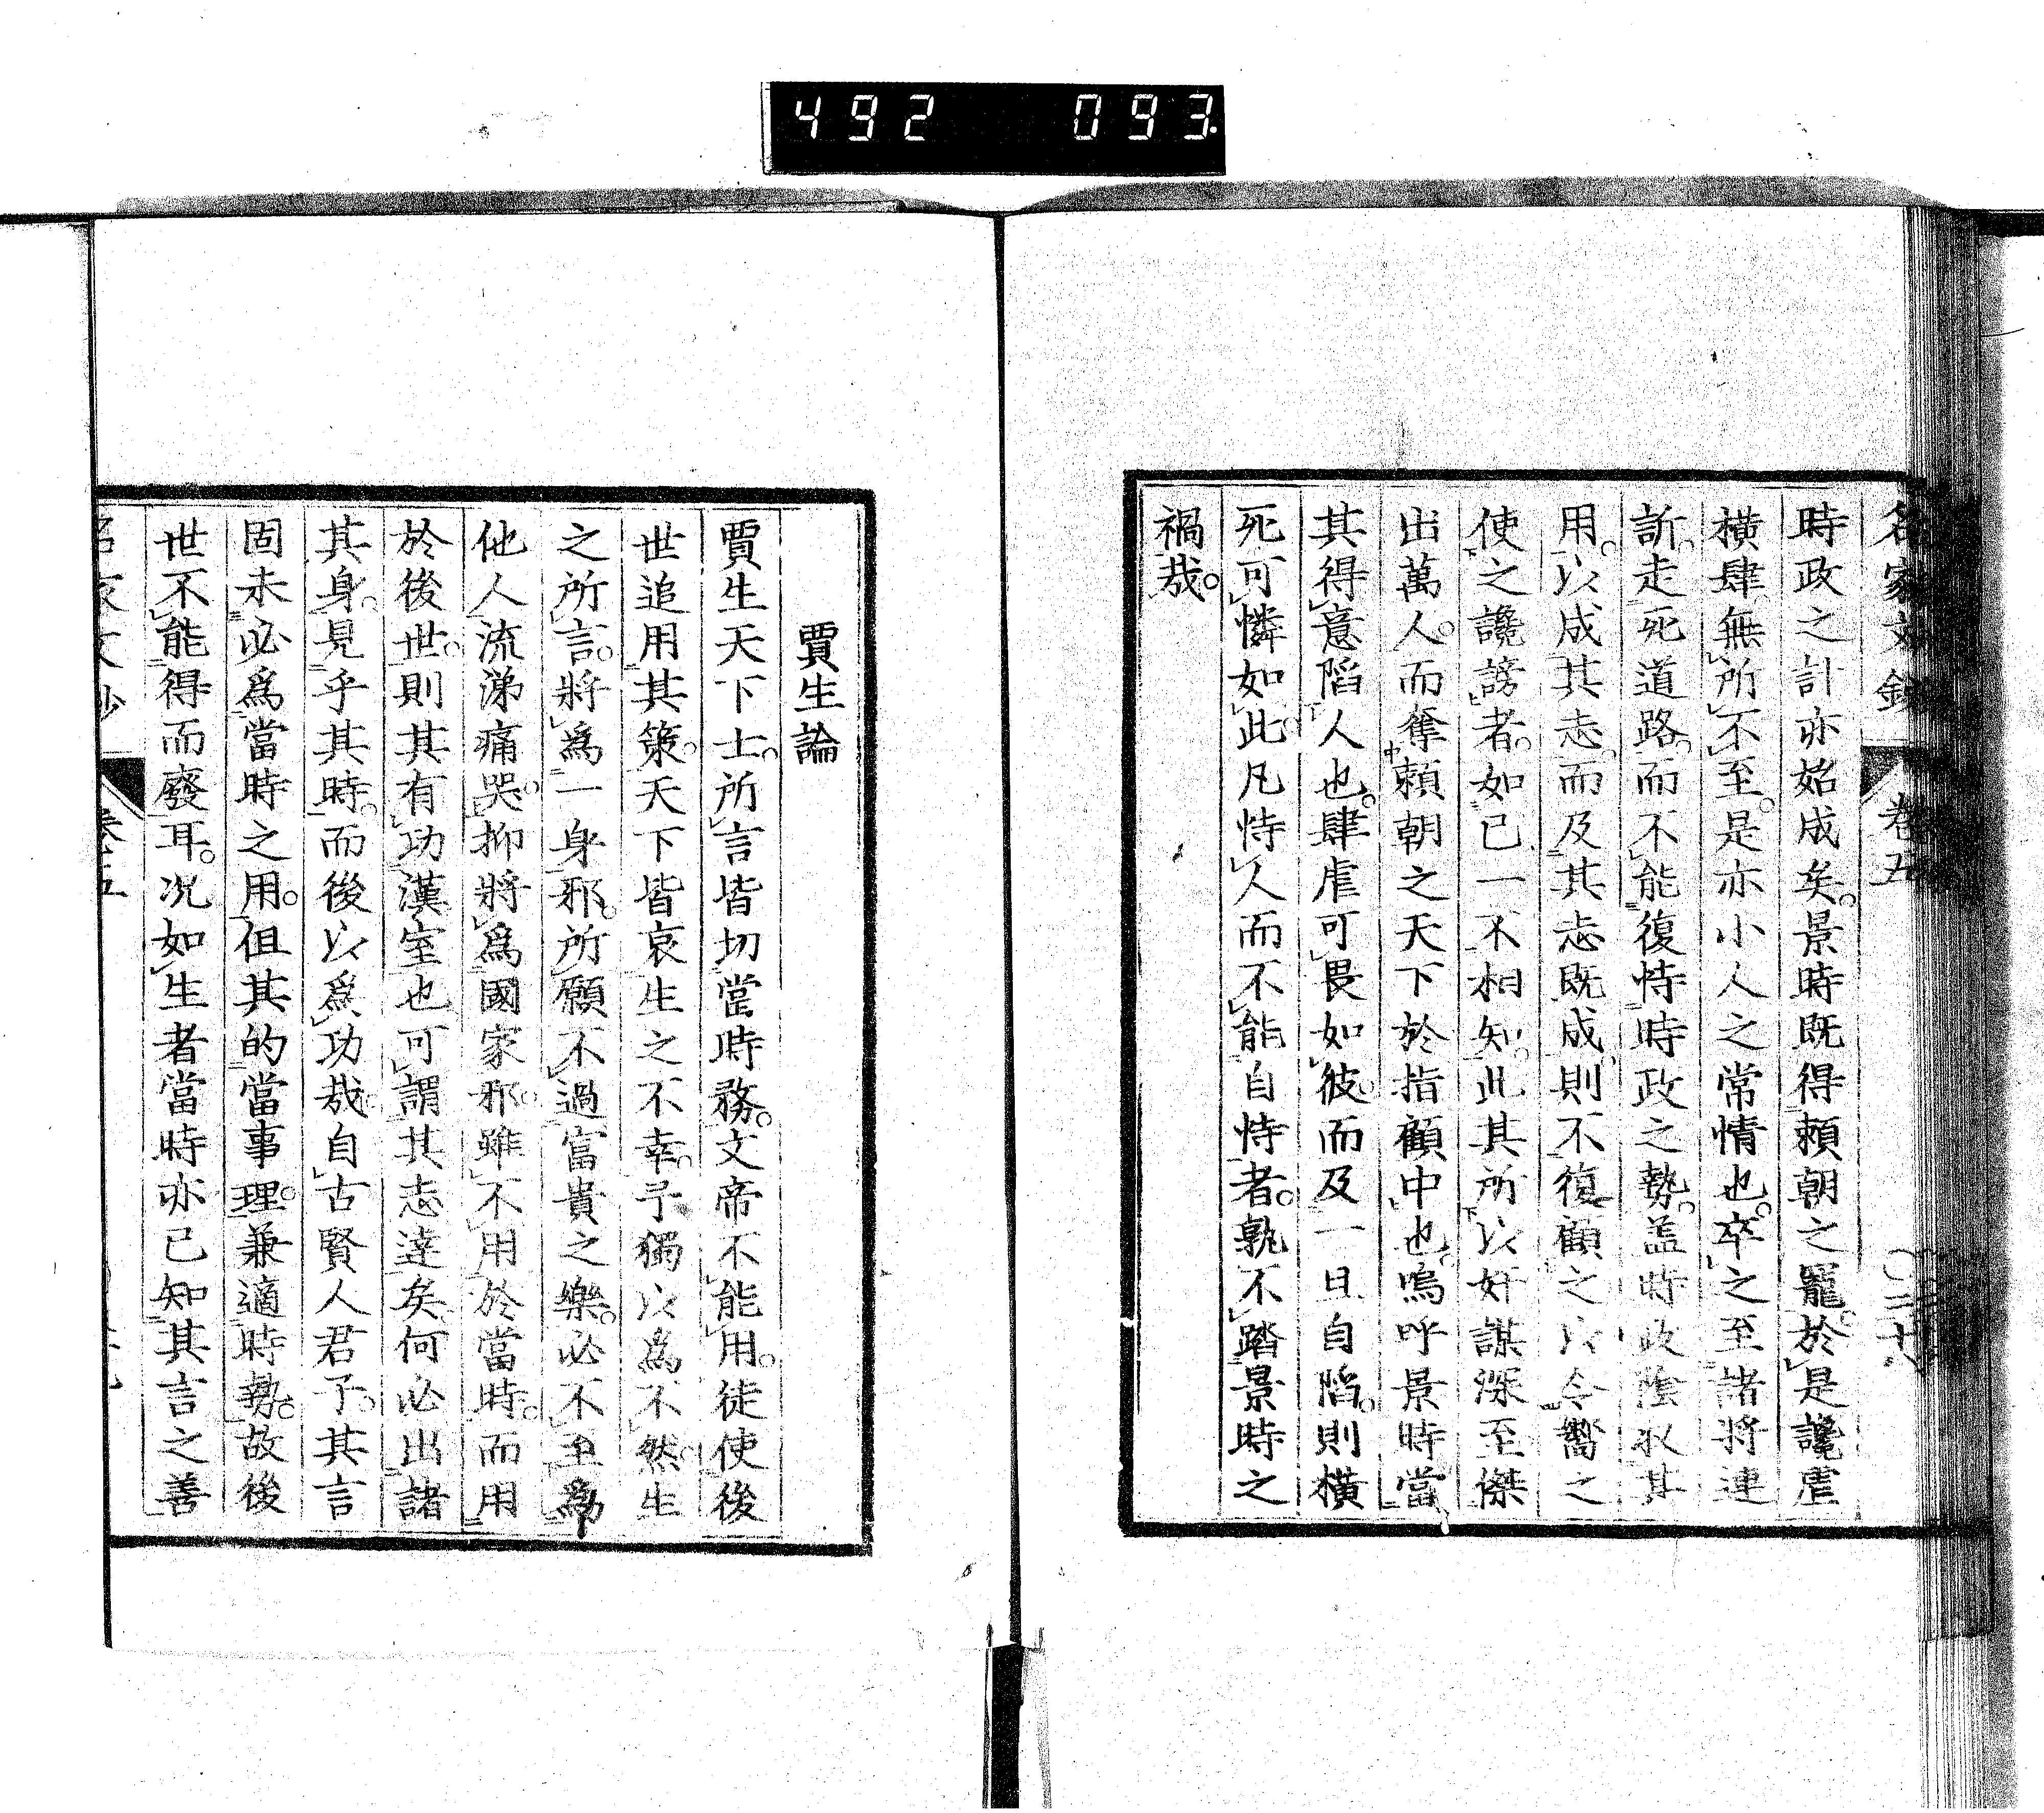 492 093
名家文鈔 卷五 二十八
時政之計亦始成矣。景時既得賴朝之寵。於是讒虐
横肆無所不至。是亦小人之常情也。卒之至諸將連
訴。走死道路。而不能復恃時政之勢。盖時政陰以其
用。以成其志。而及其志既成則不復顧之以令嚮之
使之讒謗者。如已一不相知。此其所以奸謀深至傑
出萬人。而奪賴朝之天下於指顧中也。嗚呼景時當
其得意陷人也。肆虐可畏如彼。而及一旦自陷。則横
死可憐如此。凡恃人而不能自恃者。孰不踏景時之
禍哉。
賈生論
賈生天下士。所言皆切當時務。文帝不能用。徒使後
世追用其策。天下皆哀生之不幸。予獨以為不然。生
之所言。將爲一身邪。所願不過富貴之樂。必不至爲
他人流涕痛哭。抑將爲國家邪。雖不用於當時。而用
於後世。則其有功漢室也可謂其志達矣。何必出諸
其身。見乎其時。而後以爲功哉。自古賢人君子。其言
固未必爲當時之用。但其的當事理。兼適時勢。故後
世不能得而廢耳。况如生者當時亦已知其言之善
名家文鈔 卷五